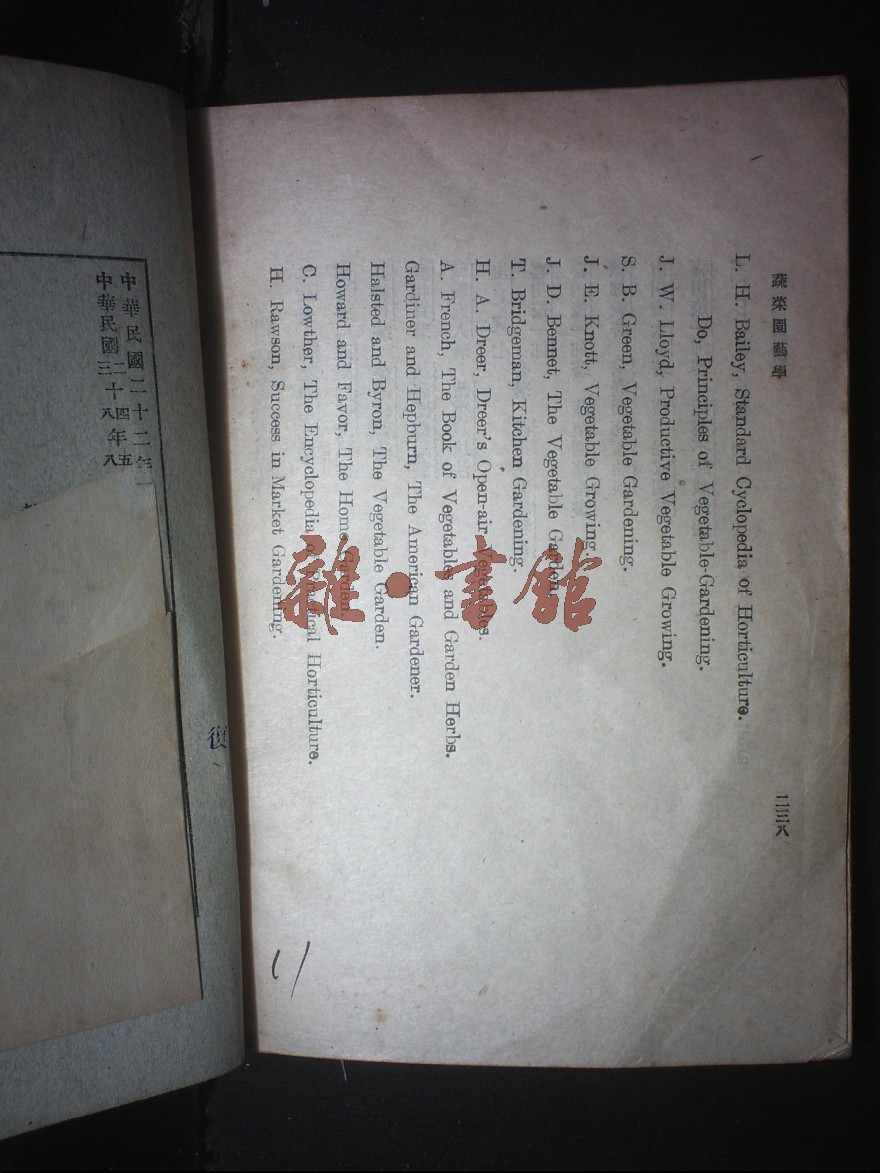 蔬菜園藝學
L. H. Bailey, Standard Cyclopedia of Horticulture.
Do, Principles of Vegetable-Gardening.
J. W. Lloyd, Productive Vegetable Growing.
S. B. Green, Vegetable Gardening.
J. E. Knott, Vegetable Growing.
J. D. Bennet, The Vegetable Garden.
T. Bridgeman, Kitchen Gardening.
H. A. Dreer, Dreer's Open-air Vegetables.
A. French, The Book of Vegetables and Garden Herbs.
Gardiner and Hepburn, The American Gardener.
Halsted and Byron, The Vegetable Garden.
Howard and Favor, The Home Garden.
C. Lowther, The Encyclopedia of Practical Horticulture.
H. Rawson, Success in Market Gardening.
中華民國二十二年
中華民國二十四年五